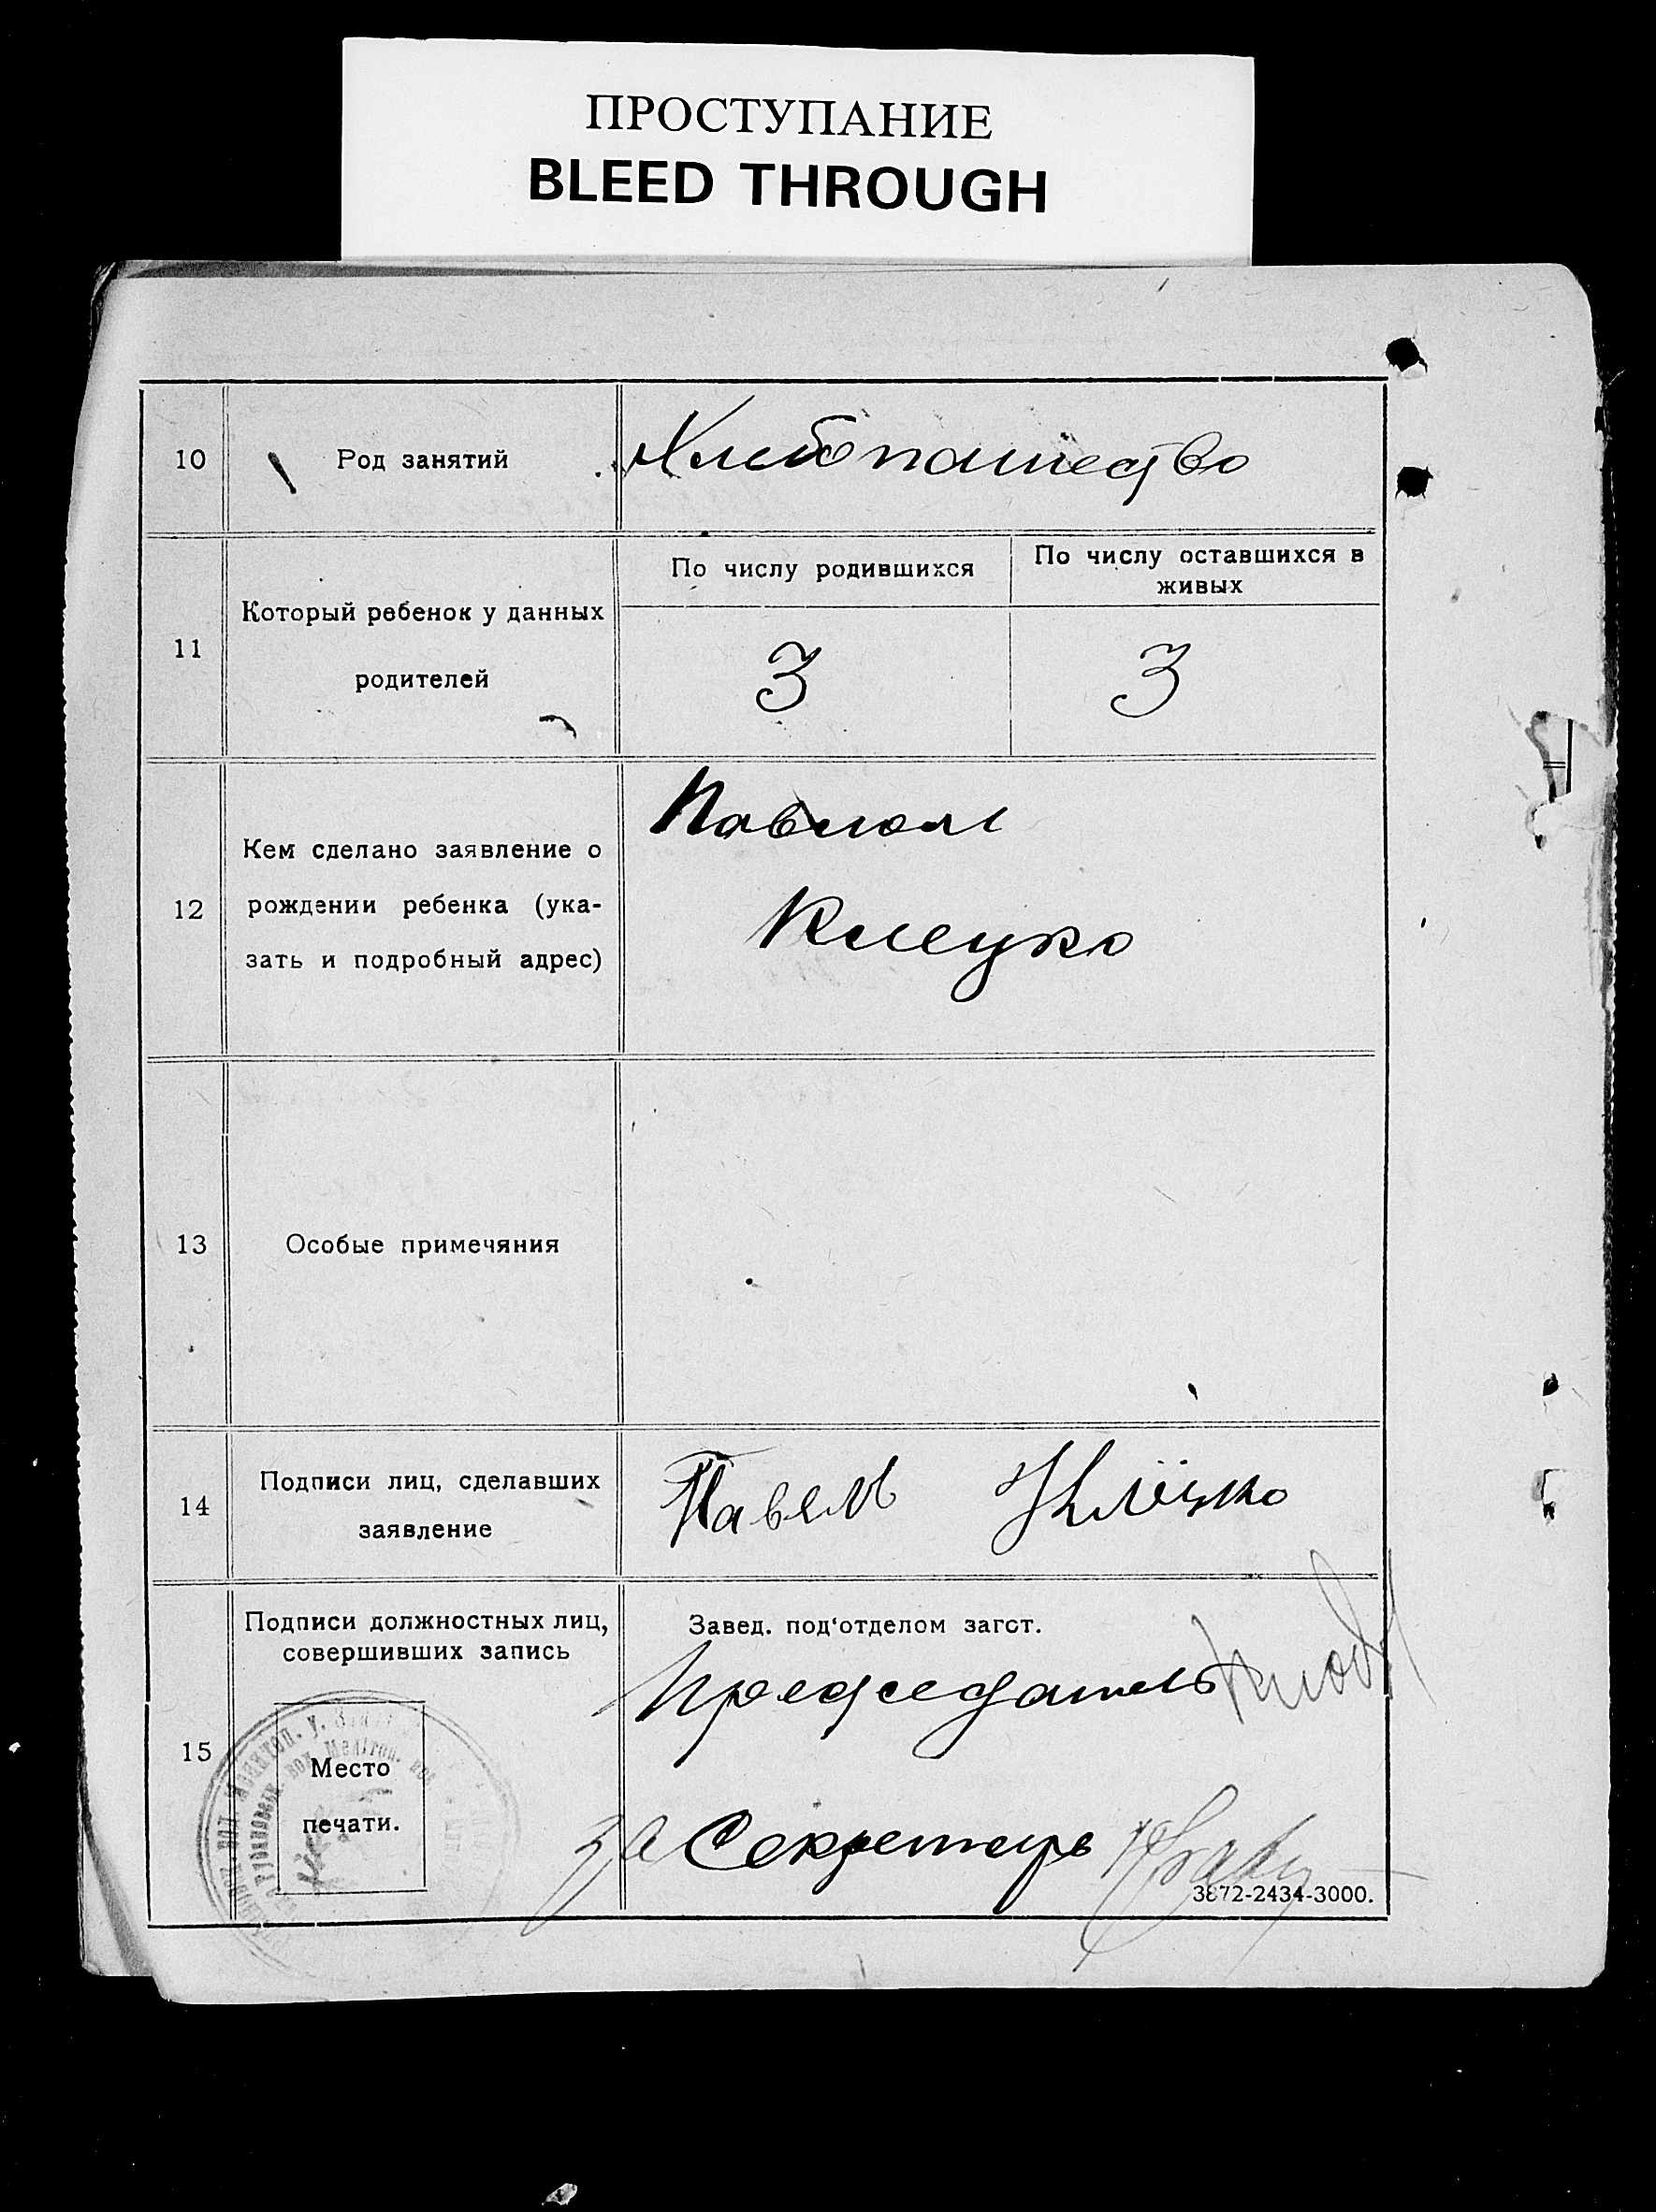 ПРОСТУПАНИЕ
BLEED THROUGH
10 Род занятий Хлебопашество
По числу родившихся По числу оставшихся в
живых
11 Который ребенок у данных
родителей
3 3
12 Кем сделано заявление о
рождении ребенка (ука-
зать и подробный адрес)
Павлом
Клецко
13 Особые примечяния
14 Подписи лиц, сделавших
заявление
Павелъ Клёцко
15 Подписи должностных лиц,
совершивших запись
Место
печати.
Завед. под'отделом загст.
Председатель
За Секретарь
3872-2434-3000.